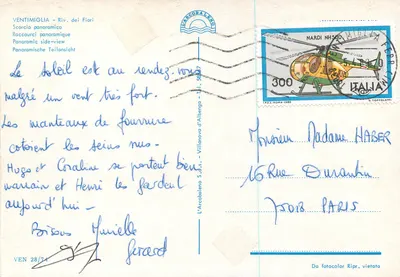 VENTIMIGLIA - Riv. dei Fiori
Scorcio panoramico
Raccourci panoramique
Panoramic side-view
Panoramische Teilansicht
Le soleil est au rendez-vous
malgré un vent très fort.
Les manteaux de fourrure
cotoient les seins nus.
Hugo et Coraline se portent bien
et Henri les gardent
aujourd'hui.
Bisous Murielle
Gérard
VEN 28/71
L'Arcobaleno S.a.s. - Villanova d'Albenga
NARDI NH 500
300
ITALIA
Monsieur Madame HABER
16 Rue Durantin
75018 PARIS
Da fotocolor Ripr. vietata